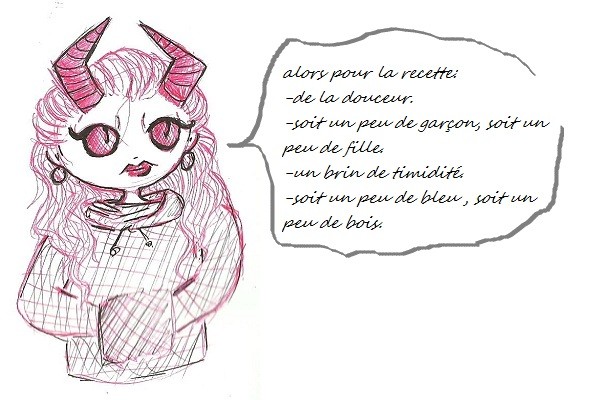 alors pour la recette:
-de la douceur.
-soit un peu de garçon, soit un
peu de fille.
-un brin de timidité.
-soit un peu de bleu , soit un
peu de bois.